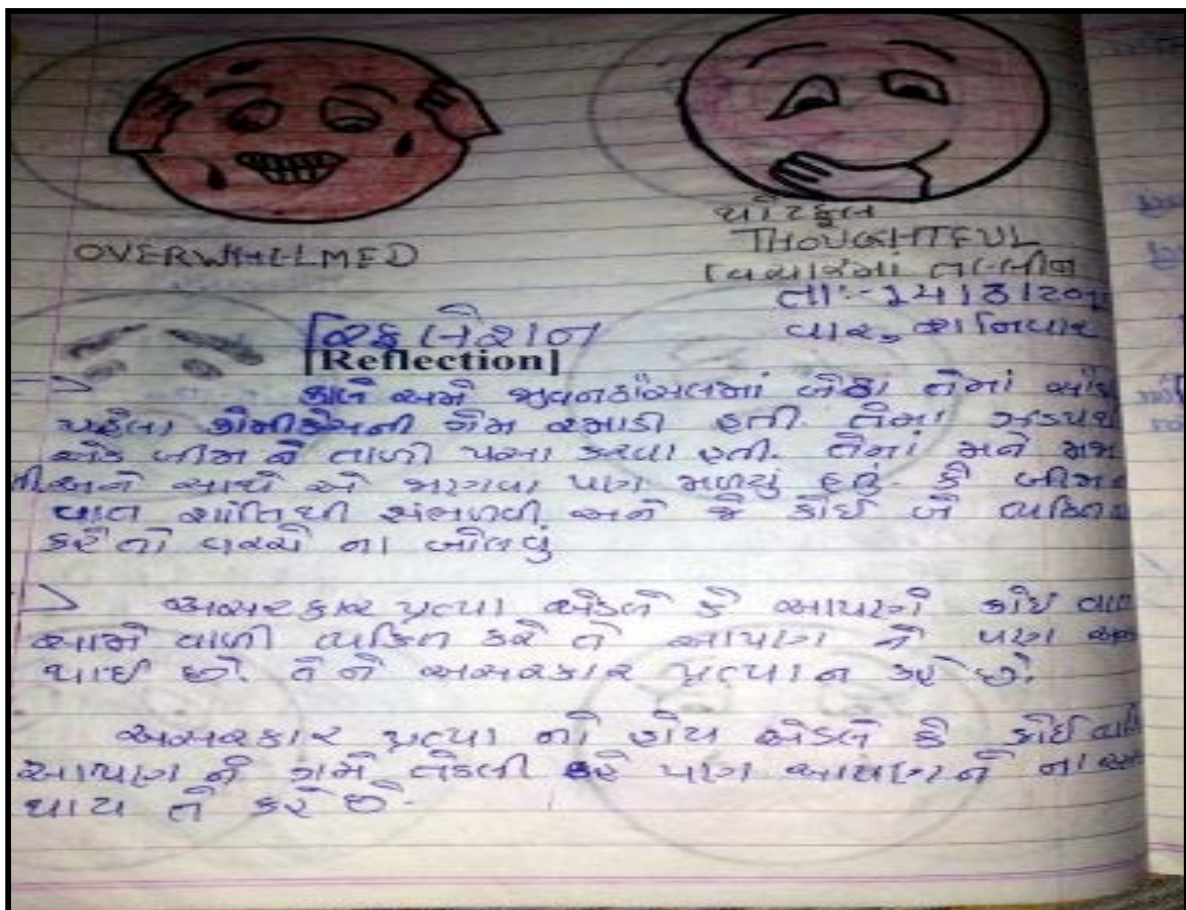 OVERWHELLMED
થોટફુલ
THOUGHTFUL
વિચારોમાં તલ્લીન
તા:-14/3/20
વાર, શનિવાર
રિફ્લેશન
[Reflection]
કાલે અમે જીવનકૌશલમાં બેઠા તેમાં
પહેલા ની ગેમ રમાડી હતી. તેમાં ઝડપથી
એક બીજા ને તાળી પાસ કરવા હતી. તેનાં મને મજા
અને સાથે એ જાણવા પણ મળ્યું હતું. કે બીજા
વાત શાંતિથી સાંભળવી અને જે કોઈ બે વ્યક્તિ
કરે તો વચ્ચે ના બોલવું
અસરકાર પ્રત્યા એટલે કે આપણને કોઈ વાત
સામે વાળી વ્યક્તિ કરે તે આપણ ને પણ
થાઈ છે. તે ને અસરકાર પ્રત્યાન કરે છે.
અસરકાર પ્રત્યા ની હોય એટલે કે કોઈ
આપણ ને ગમે તેટલી કરે પણ આપણને ના
થાય તે કરે છે.